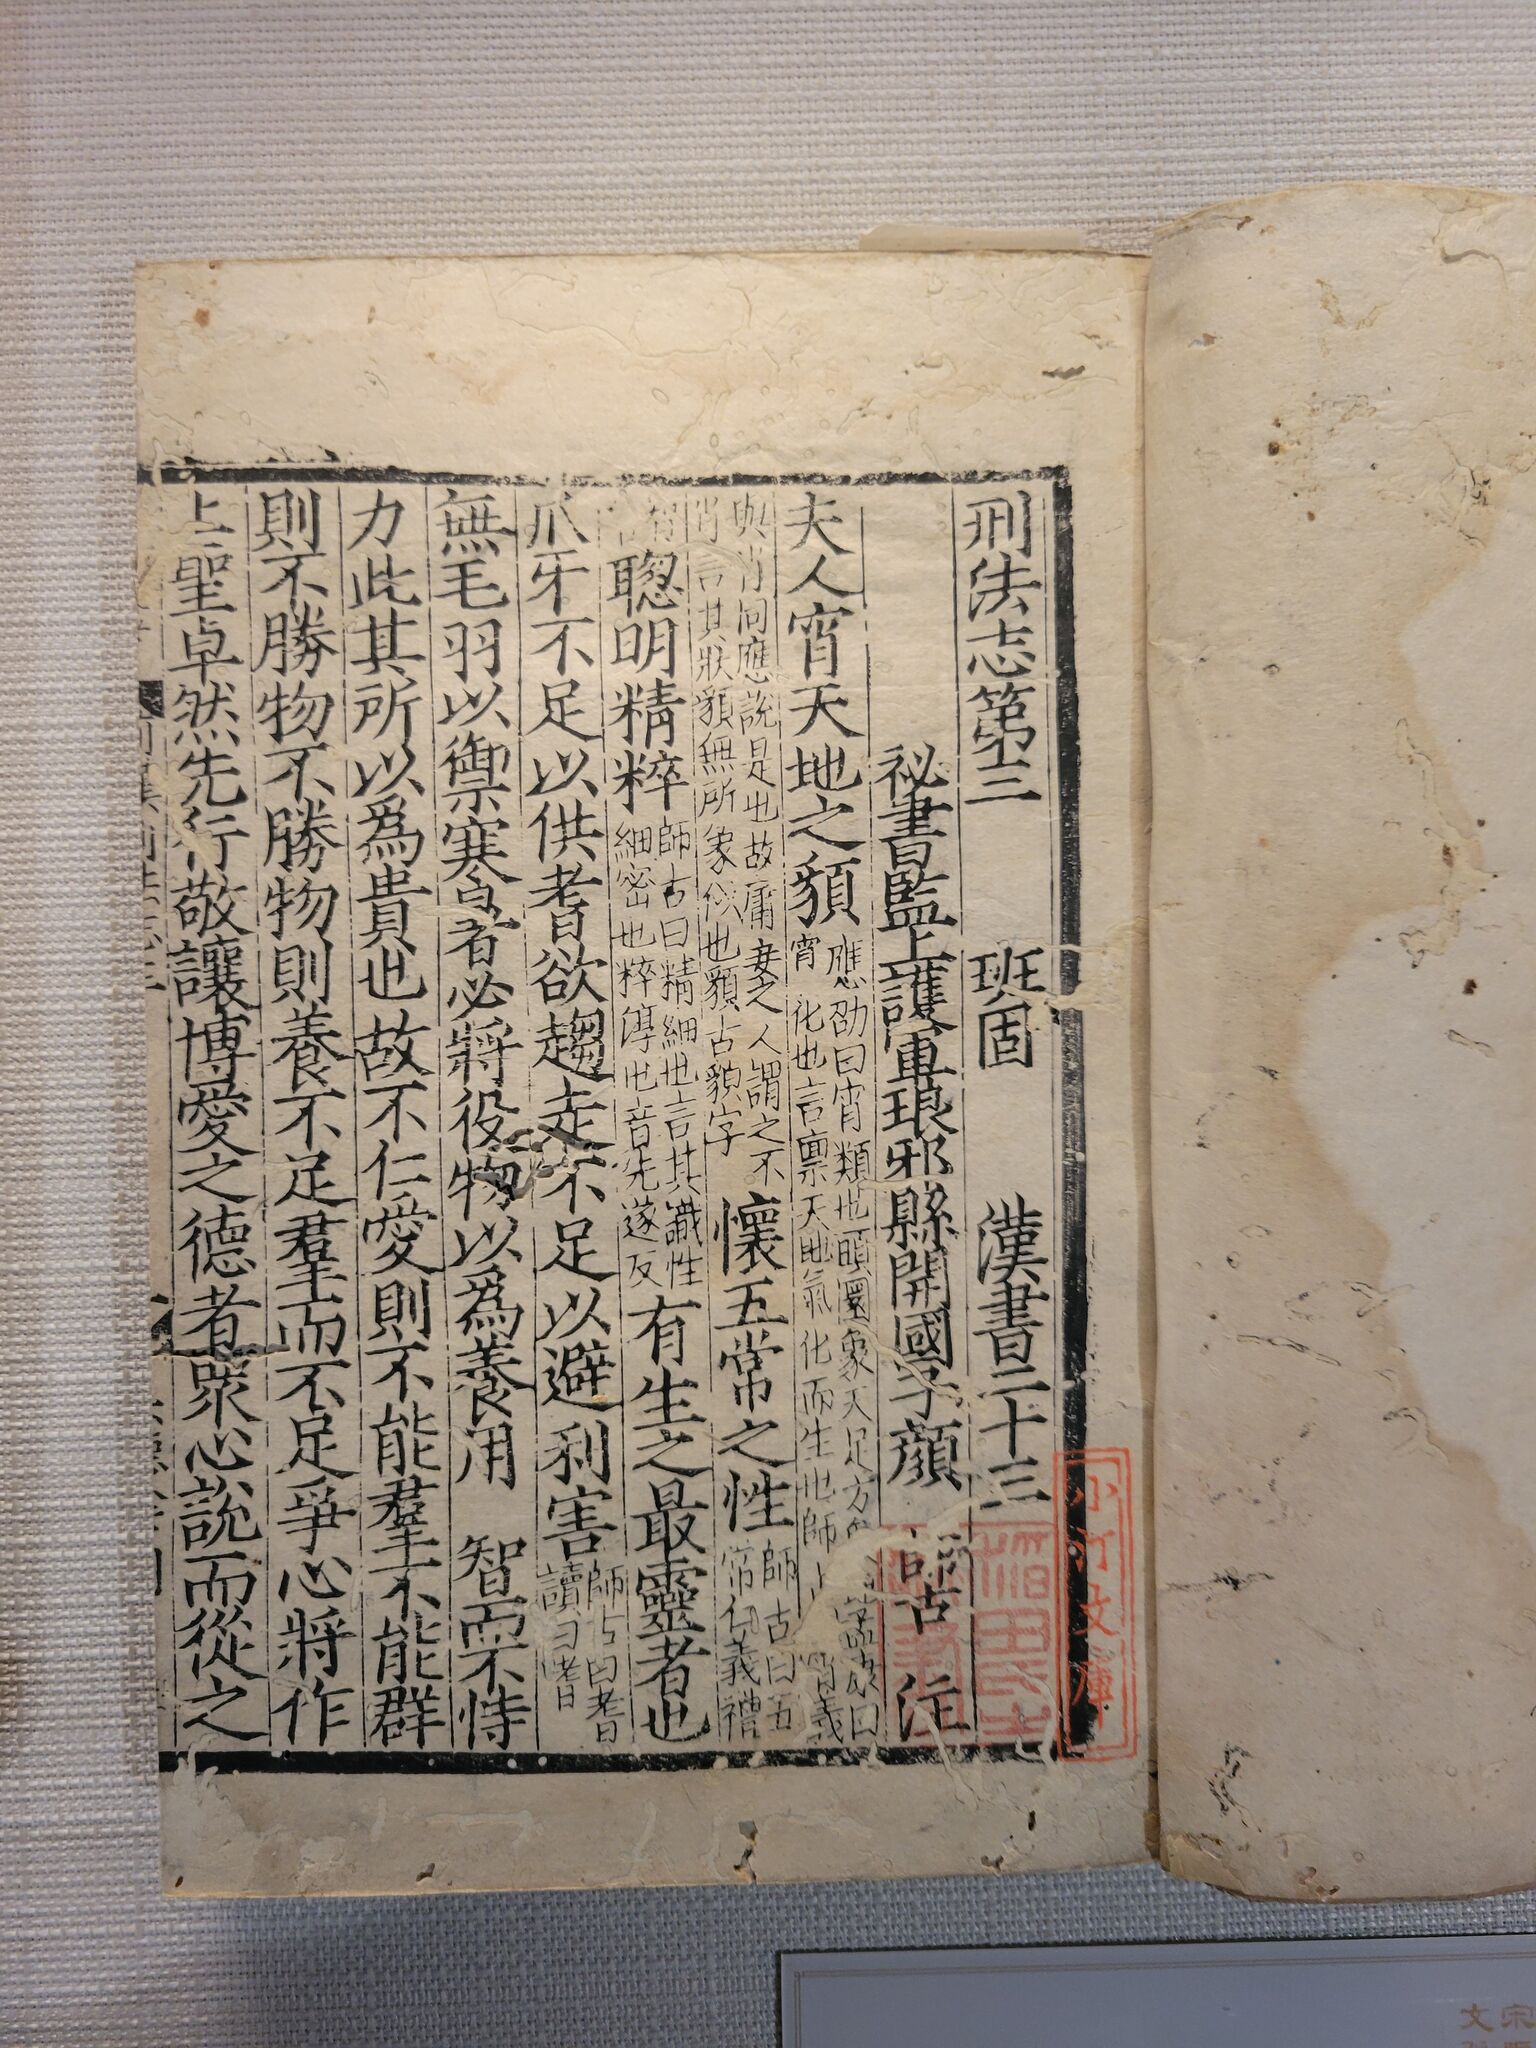 刑法志第三 班固 漢書二十三
祕書監上護軍琅邪縣開國子顏 師古 注
夫人宵天地之䫉 應劭曰宵類也頭圜象天足方
宵 化也言禀天地氣化而生也師
與肖同應說是也故庸妾之人謂之不
肖言其狀䫉無所象似也䫉古貌字 懷五常之性 師古曰五
常仁義禮
聰明精粹 師古曰精細也言其識性
細密也粹淳也音先遂反 有生之最靈者也
爪牙不足以供耆欲趨走不足以避利害 師古曰耆
讀曰嗜
無毛羽以禦寒暑者必將役物以爲養用 智而不恃
力此其所以爲貴也故不仁愛則不能羣不能群
則不勝物不勝物則養不足羣而不足爭心將作
上聖卓然先行敬讓博愛之德者眾心說而從之
小汀文庫